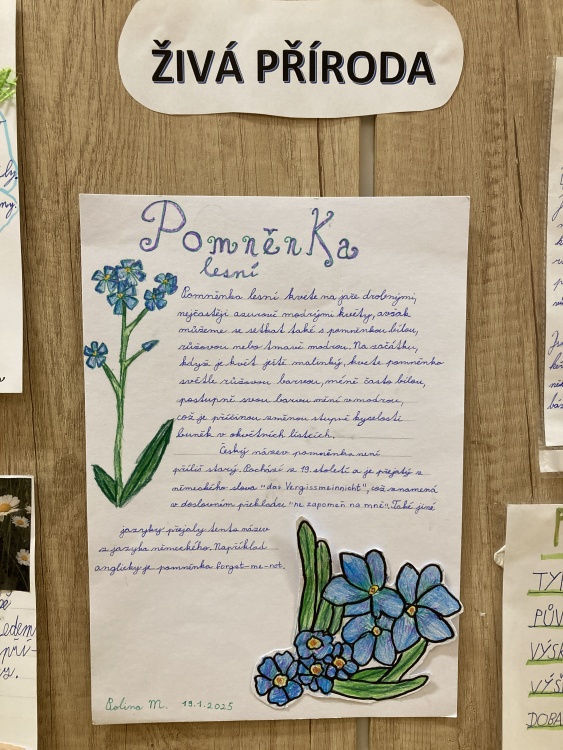 ŽIVÁ PŘÍRODA
Pomněnka
lesní
Pomněnka lesní kvete na jaře drobnými,
nejčastěji azurově modrými květy, avšak
můžeme se setkat také s pomněnkou bílou,
růžovou nebo tmavě modrou. Na začátku,
když je květ ještě malinký, kvete pomněnka
světle růžovou barvou, méně často bílou,
postupně svou barvu mění v modrou,
což je příčinou změnou stupně kyselosti
buněk v okvětních lístcích.
Český název pomněnka není
příliš starý. Pochází z 19. století a je přejatý z
německého slova "das Vergissmeinnicht", což znamená
v doslovném překladu "ne zapomeň na mně". Také jiné
jazyky přejaly tento název
z jazyka německého. Například
anglicky je pomněnka Forget-me-not.
Polina M. 19.1.2025
edem
pří-
TY
PŮV
VÝSK
VÝŠ
DOBA